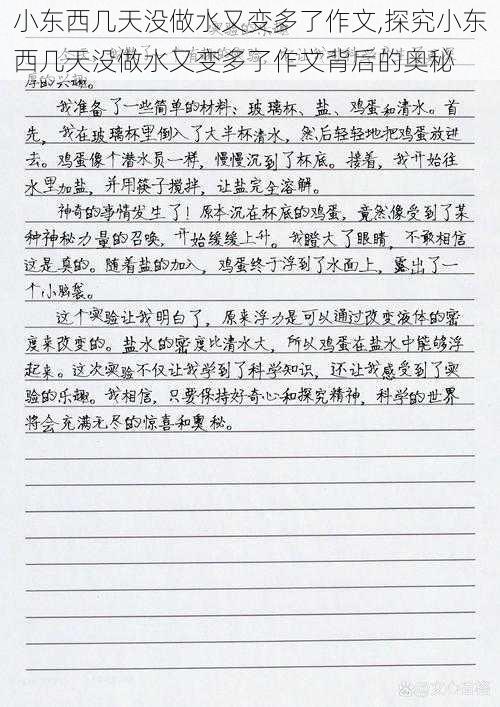 小东西几天没做水又变多了作文,探究小东
西几天没做水又变多了作文背后的奥秘
厚的兴趣。
我准备了一些简单的材料：玻璃杯、盐、鸡蛋和清水。首
先，我在玻璃杯里倒入了大半杯清水，然后轻轻地把鸡蛋放进
去。鸡蛋像个潜水员一样，慢慢沉到了杯底。接着，我开始往
水里加盐，并用筷子搅拌，让盐完全溶解。
神奇的事情发生了！原本沉在杯底的鸡蛋，竟然像受到了某
种神秘力量的召唤，开始缓缓上升。我瞪大了眼睛，不敢相信
这是真的。随着盐的加入，鸡蛋终于浮到了水面上，露出了一
个小脑袋。
这个实验让我明白了，原来浮力是可以通过改变液体的密
度来改变的。盐水的密度比清水大，所以鸡蛋在盐水中能够浮
起来。这次实验不仅让我学到了科学知识，还让我感受到了实
验的乐趣。我相信，只要保持好奇心和探究精神，科学的世界
将会充满无尽的惊喜和奥秘。